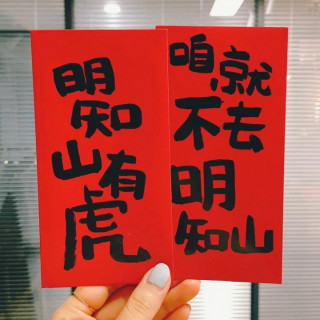 明知
山有
虎
咱就
不去
明
知山